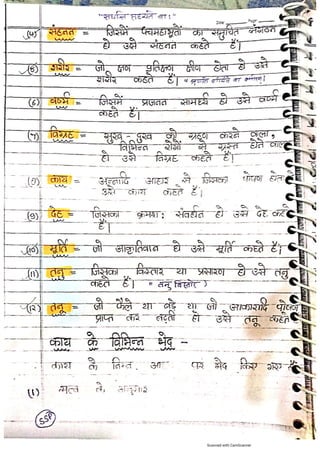 (4) संहनन = जिसमें पंचमहाभूतों का समुचित संगठन
हो उसे संहनन कहते हैं।
(5) शरीर = जो क्षण प्रतिक्षण क्षीण होता हो उसे
शरीर कहते हैं।
(6) वर्ष्म = जिसमें प्रजनन सामर्थ्य हो उसे वर्ष्म
कहते हैं।
(7) विग्रह = सुख-दुख को ग्रहण करने वाला,
विभिन्न रोगों से ग्रस्त होने वाला
हो उसे विग्रह कहते हैं।
(8) काय = अन्नादि आहार से जिसका पोषण होता
उसे काय कहते हैं।
(9) देह = जिसका क्रमशः संवर्धन हो उसे देह कहते
हैं।
(10) मूर्ति = जो आकृतिवान हो उसे मूर्ति कहते हैं।
(11) तनु = जिसका विस्तार या प्रसारण हो उसे तनु
कहते हैं।
(12) तनू = जो फैले या बढे या जो आकारादि
प्राप्त कर बढती हो उसे तनू कहते
काय के विभिन्न भेद -
काय के निम्न पर भेद किए गए हैं
(1) के अनुसार
SSP
Scanned with CamScanner